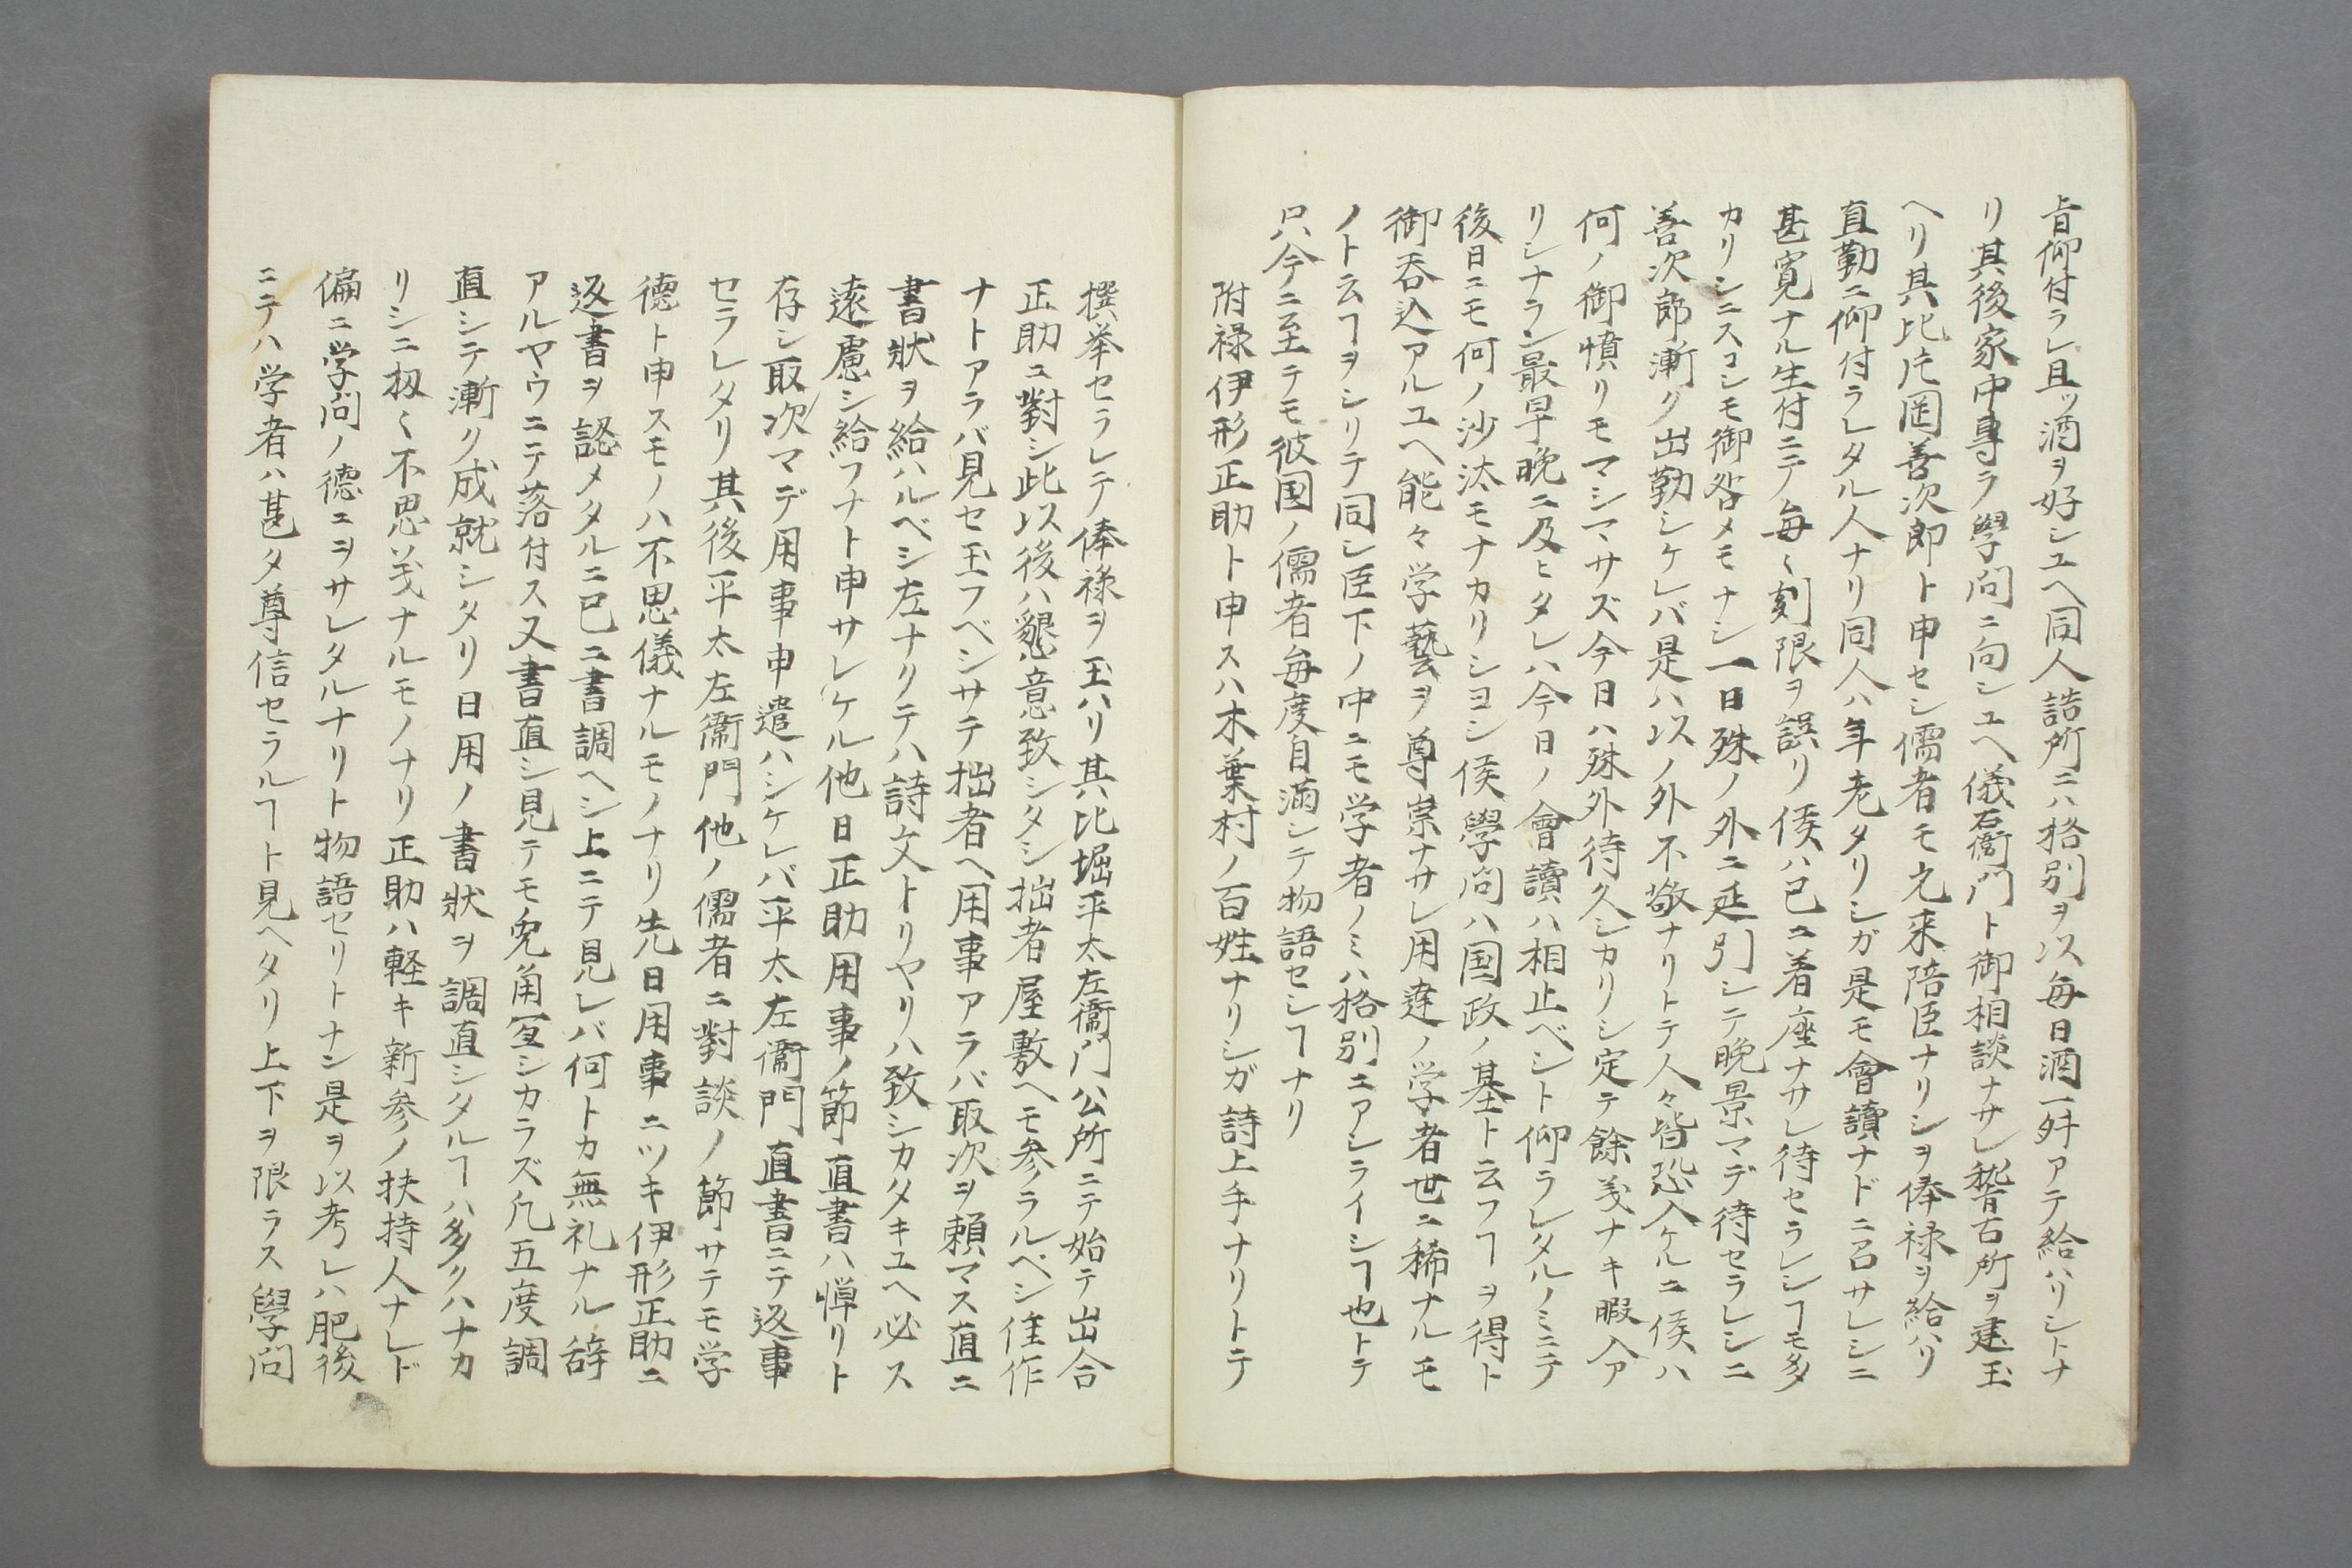 旨仰付ラレ且ツ酒ヲ好シユヘ同人詰所ニハ格別ヲ以毎日酒一舛アテ給ハリシトナ
リ其後家中専ラ學問ニ向シユヘ儀右衛門ト御相談ナサレ稽古所ヲ建玉
ヘリ其比片岡善次郎ト申セシ儒者モ元来陪臣ナリシヲ俸禄ヲ給ハリ
直勤ニ仰付ラレタル人ナリ同人ハ年老タリシガ是モ會讀ナドニ召サレシニ
甚寛ナル生付ニテ毎〱刻限ヲ誤リ侯ハ已ニ着座ナサレ待セラレシヿモ多
カリシニスコシモ御咎メモナシ一日殊ノ外ニ延引シテ晩景マデ待セラレシニ
善次郎漸ク出勤シケレバ是ハ以ノ外不敬ナリトテ人々皆恐入ケルニ侯ハ
何ノ御憤リモマシマサズ今日ハ殊外待久シカリシ定テ餘義ナキ暇入ア
リシナラン最早晩ニ及ヒタレハ今日ノ會讀ハ相止ベシト仰ラレタルノミニテ
後日ニモ何ノ沙汰モナカリシヨシ侯學問ハ国政ノ基ト云フヿヲ得ト
御呑込アルユヘ能々学藝ヲ尊崇ナサレ用達ノ学者世ニ稀ナルモ
ノト云ヿヲシリテ同シ臣下ノ中ニモ学者ノミハ格別ニアシライシヿ也トテ
只今ニ至テモ彼国ノ儒者毎度自満シテ物語セシヿナリ
附禄伊形正助ト申スハ木葉村ノ百姓ナリシガ詩上手ナリトテ
撰挙セラレテ俸禄ヲ玉ハリ其比堀平太左衞門公所ニテ始テ出合
正助ニ對シ此以後ハ懇意致シタシ拙者屋敷ヘモ参ラルベシ佳作
ナトアラバ見セ玉フベシサテ拙者ヘ用事アラバ取次ヲ頼マス直ニ
書狀ヲ給ハルベシ左ナクテハ詩文トリヤリハ致シカタキユヘ必ス
遠慮シ給フナト申サレケル他日正助用事ノ節直書ハ憚リト
存シ取次マデ用事申遣ハシケレバ平太左衞門直書ニテ返事
セラレタリ其後平太左衞門他ノ儒者ニ對談ノ節サテモ学
德ト申スモノハ不思儀ナルモノナリ先日用事ニツキ伊形正助ニ
返書ヲ認メタルニ已ニ書調ヘシ上ニテ見レバ何トカ無礼ナル辞
アルヤウニテ落付ス又書直シ見テモ兎角冝シカラズ凡五度調
直シテ漸ク成就シタリ日用ノ書狀ヲ調直シタルヿハ多クハナカ
リシニ扨〱不思义ナルモノナリ正助ハ軽キ新参ノ扶持人ナレド
偏ニ学問ノ德ニヲサレタルナリト物語セリトナン是ヲ以考レハ肥後
ニテハ学者ハ甚タ尊信セラルヿト見ヘタリ上下ヲ限ラス學問